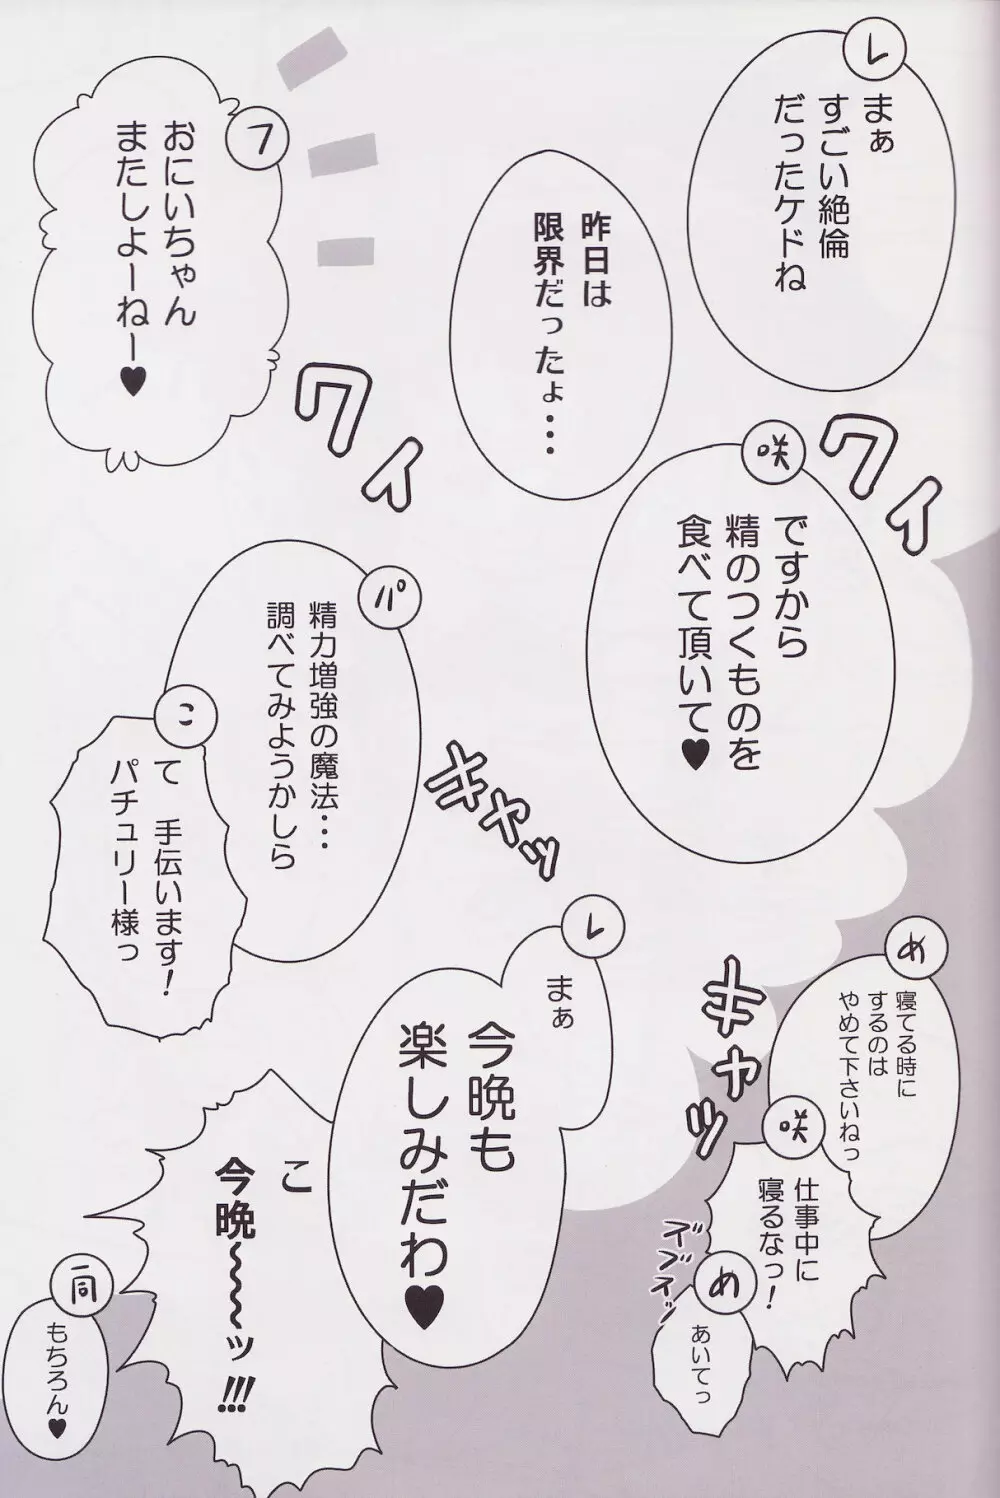 レ
まぁ
すごい絶倫
だったケドね
昨日は
限界だったょ…
フ
おにいちゃん
またしよーねー♥
ワイ
ワイ
咲
ですから
精のつくものを
食べて頂いて♥
パ
精力増強の魔法…
調べてみようかしら
こ
て 手伝います!
パチュリー様っ
キャッ
キャッ
め
寝てる時に
するのは
やめて下さいねっ
咲
仕事中に
寝るなっ!
ズブスッ
め
あいてっ
レ
まぁ
今晩も
楽しみだわ♥
こ
今晩~~~ッ!!!
一同
もちろん♥